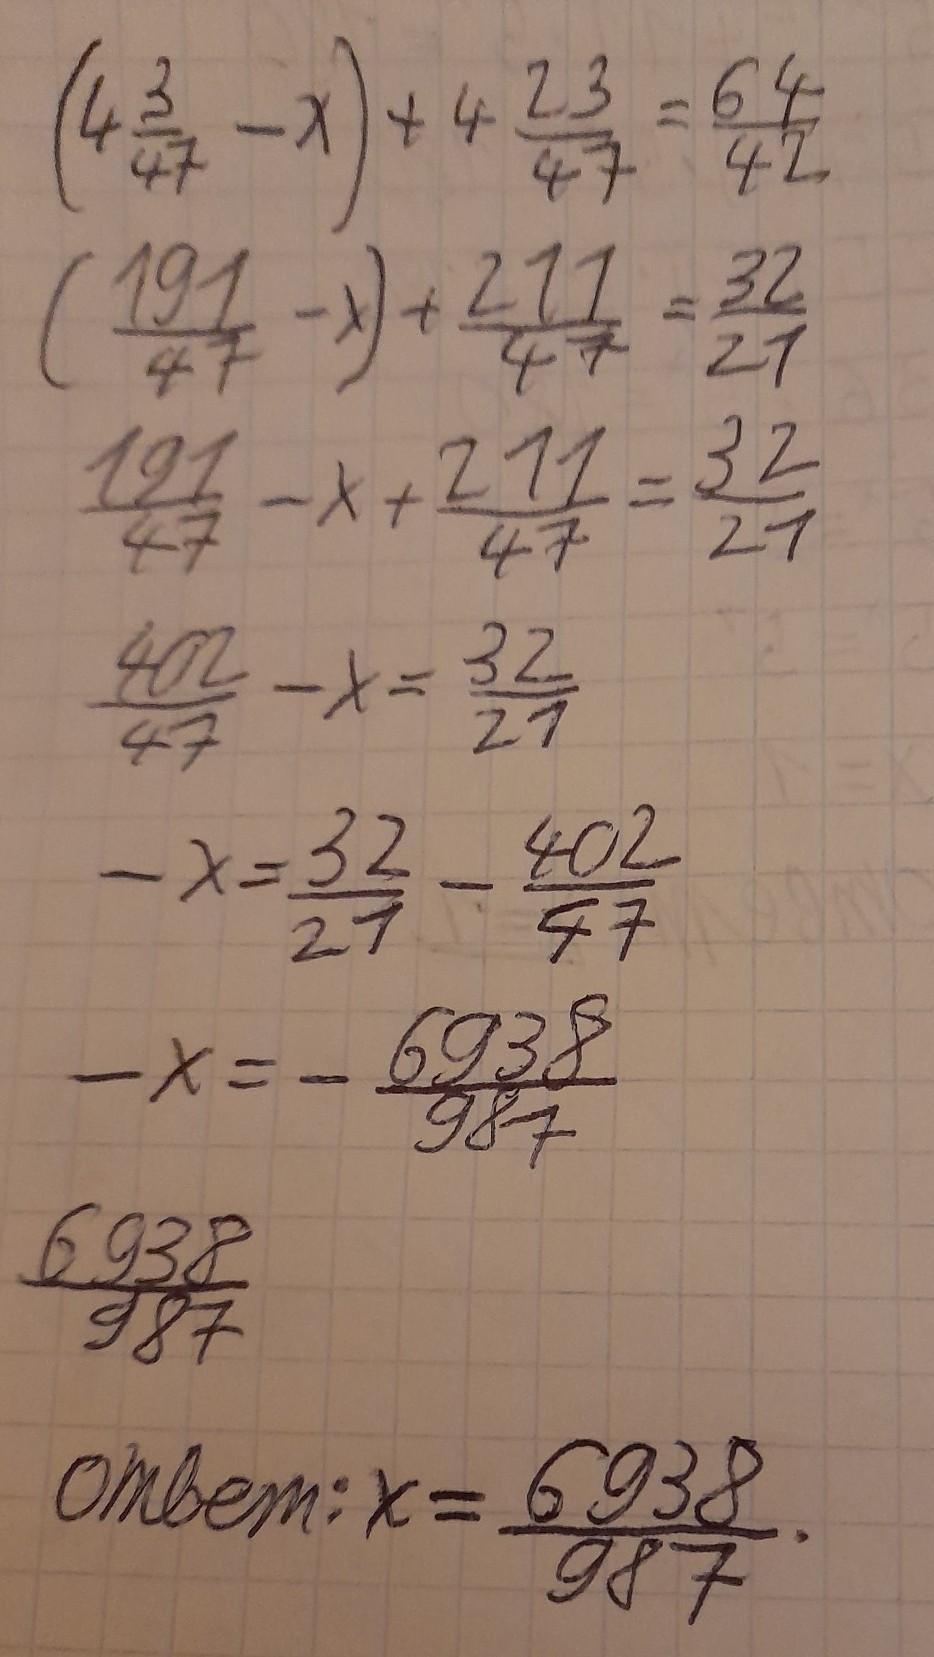 (4 3/47 - x) + 4 23/47 = 64/42
(191/47 - x) + 211/47 = 32/21
191/47 - x + 211/47 = 32/21
402/47 - x = 32/21
- x = 32/21 - 402/47
- x = - 6938/987
6938/987
ответ: x = 6938/987.